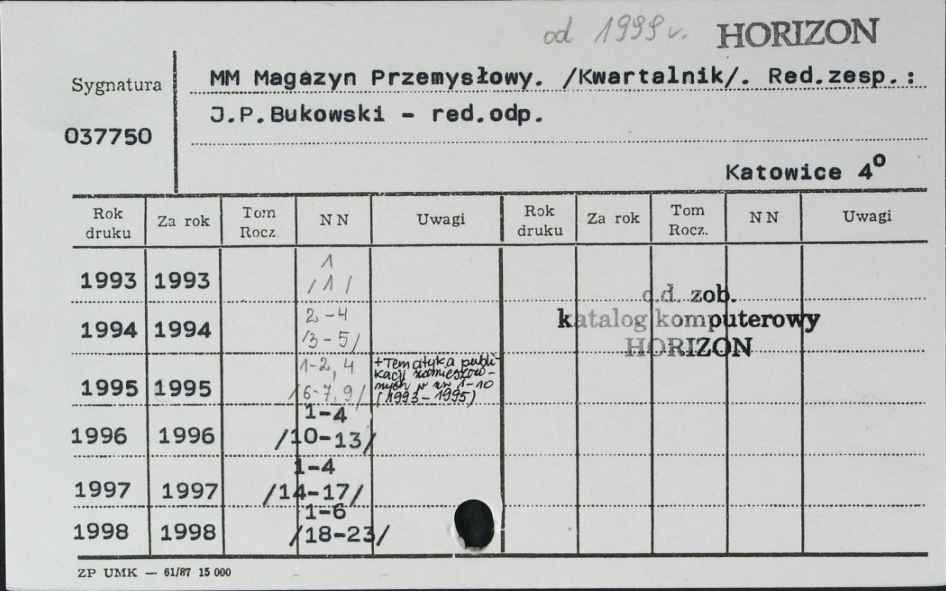 od 1999 r. HORIZON
Sygnatura
037750
MM Magazyn Przemysłowy. /Kwartalnik/. Red.zesp.:
J.P.Bukowski - red.odp.
Katowice 4°
Rok druku Za rok Tom Rocz. NN Uwagi Rok druku Za rok Tom Rocz. NN Uwagi
1993 1993 1 /1/
1994 1994 2-4 /3-5/
1995 1995 1-2, 4 /6-7, 9/ +Tematyka publikacji zamieszczonych w nr 1-10 (1993-1995)
1996 1996 1-4 /10-13/
1997 1997 1-4 /14-17/
1998 1998 1-6 /18-23/
c.d. zob.
katalog komputerowy
HORIZON
ZP UMK — 61/87 15 000